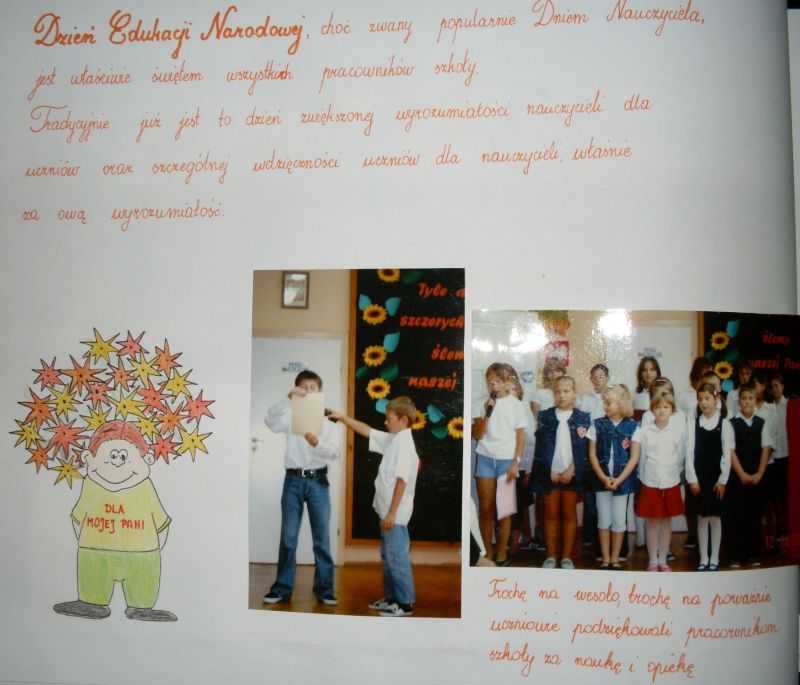 Dzień Edukacji Narodowej, choć zwany popularnie Dniem Nauczyciela,
jest właściwie świętem wszystkich pracowników szkoły.
Tradycyjnie już jest to dzień zwiększonej wyrozumiałości nauczycieli dla
uczniów oraz szczególnej wdzięczności uczniów dla nauczycieli, właśnie
za ową wyrozumiałość.
DLA
MOJEJ PANI
Tyle
szczerych
ślemy
naszej
ślemy
naszej Pani
Trochę na wesoło, trochę na poważnie
uczniowie podziękowali pracownikom
szkoły za naukę i opiekę